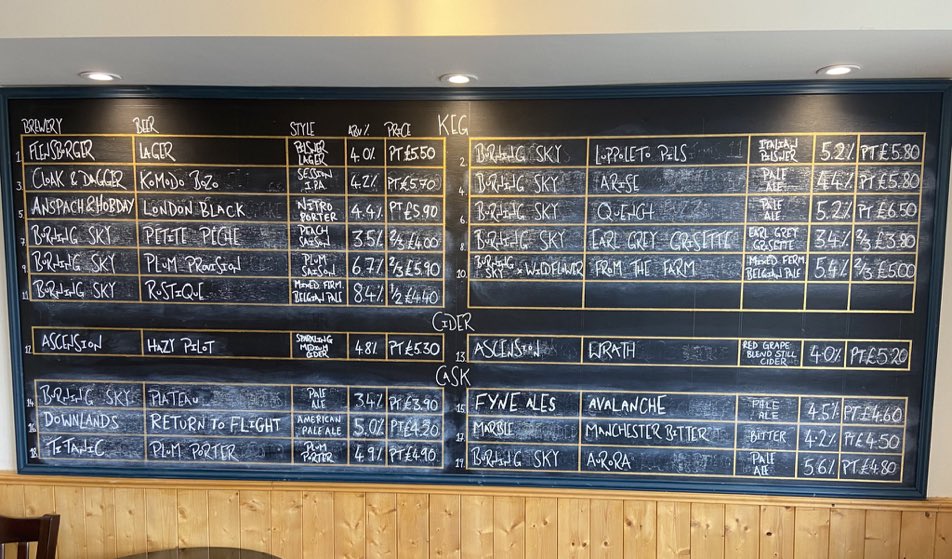 BREWERY BEER STYLE ABV% PRICE KEG
1. FLENSBURGER LAGER PILSNER LAGER 4.0% PT £5.50
2. BURNING SKY LUPPOLETO PILS ITALIAN PILSNER 5.2% PT £5.80
3. CLOAK & DAGGER KOMODO BOZO SESSION IPA 4.2% PT £5.70
4. BURNING SKY ARISE PALE ALE 4.4% PT £5.80
5. ANSPACH & HOBDAY LONDON BLACK NITRO PORTER 4.4% PT £5.90
6. BURNING SKY QUENCH PALE ALE 5.2% PT £6.50
7. BURNING SKY PETITE PECHE PEACH SAISON 3.5% 2/3 £4.00
8. BURNING SKY EARL GREY GRISETTE EARL GREY GRISETTE 3.4% 2/3 £3.80
9. BURNING SKY PLUM PROVISION PLUM SAISON 6.7% 2/3 £5.90
10. BURNING SKY x WILDFLOWER FROM THE FARM MIXED FERM. BELGIAN PALE 5.4% 2/3 £5.00
11. BURNING SKY RUSTIQUE MIXED FERM. BELGIAN PALE 8.4% 1/2 £4.40
CIDER
12. ASCENSION HAZY PILOT SPARKLING MEDIUM CIDER 4.8% PT £5.30
13. ASCENSION WRATH RED GRAPE BLEND STILL CIDER 4.0% PT £5.20
CASK
14. BURNING SKY PLATEAU PALE ALE 3.4% PT £3.90
15. FYNE ALES AVALANCHE PALE ALE 4.5% PT £4.60
16. DOWNLANDS RETURN TO FLIGHT AMERICAN PALE ALE 5.0% PT £4.30
17. MARBLE MANCHESTER BITTER BITTER 4.2% PT £4.50
18. TITANIC PLUM PORTER PLUM PORTER 4.9% PT £4.90
19. BURNING SKY AURORA PALE ALE 5.6% PT £4.80